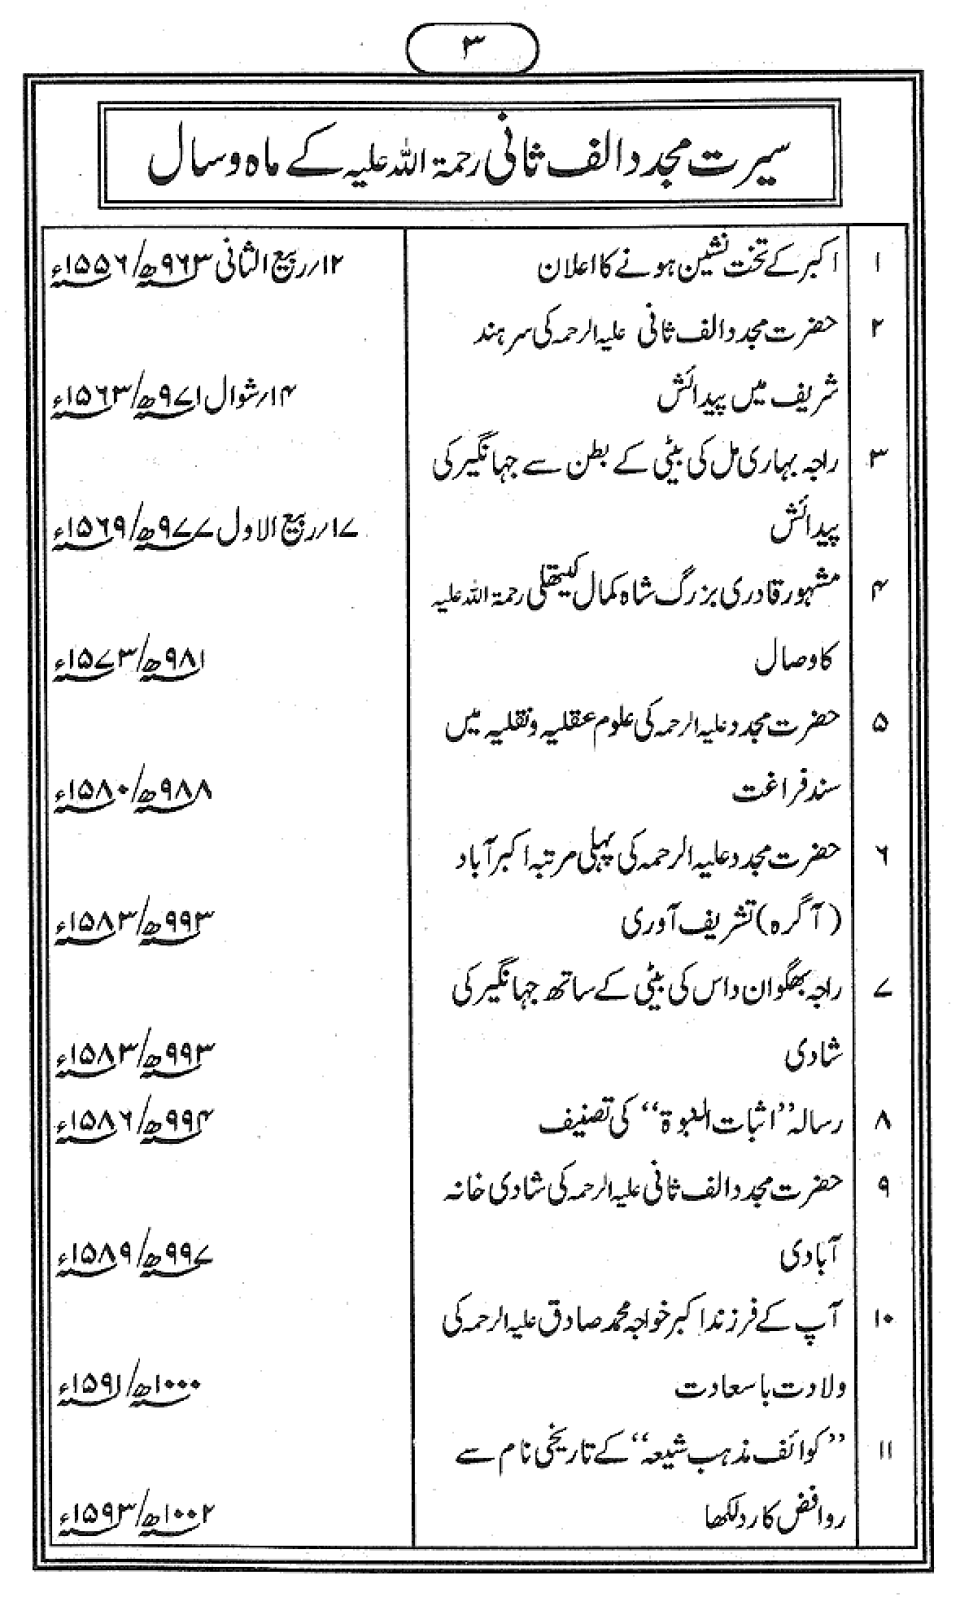 ۳
سیرت مجدد الف ثانی رحمۃ اللہ علیہ کے ماہ و سال
۱ اکبر کے تخت نشین ہونے کا اعلان ۱۲؍ربیع الثانی ۹۶۳ھ/۱۵۵۶ء
۲ حضرت مجدد الف ثانی علیہ الرحمہ کی سرہند
شریف میں پیدائش ۱۴؍شوال ۹۷۱ھ/۱۵۶۳ء
۳ راجہ بہاری مل کی بیٹی کے بطن سے جہانگیر کی
پیدائش ۱۷؍ربیع الاول ۹۷۷ھ/۱۵۶۹ء
۴ مشہور قادری بزرگ شاہ کمال کیتھلی رحمۃ اللہ علیہ
کا وصال ۹۸۱ھ/۱۵۷۳ء
۵ حضرت مجدد علیہ الرحمہ کی علوم عقلیہ و نقلیہ میں
سند فراغت ۹۸۸ھ/۱۵۸۰ء
۶ حضرت مجدد علیہ الرحمہ کی پہلی مرتبہ اکبر آباد
(آگرہ) تشریف آوری ۹۹۳ھ/۱۵۸۳ء
۷ راجہ بھگوان داس کی بیٹی کے ساتھ جہانگیر کی
شادی ۹۹۳ھ/۱۵۸۳ء
۸ رسالہ ’’اثبات النبوۃ‘‘ کی تصنیف ۹۹۴ھ/۱۵۸۶ء
۹ حضرت مجدد الف ثانی علیہ الرحمہ کی شادی خانہ
آبادی ۹۹۷ھ/۱۵۸۹ء
۱۰ آپ کے فرزند اکبر خواجہ محمد صادق علیہ الرحمہ کی
ولادت باسعادت ۱۰۰۰ھ/۱۵۹۱ء
۱۱ ’’کوائف مذہب شیعہ‘‘ کے تاریخی نام سے
روافض کا رد لکھا ۱۰۰۲ھ/۱۵۹۳ء